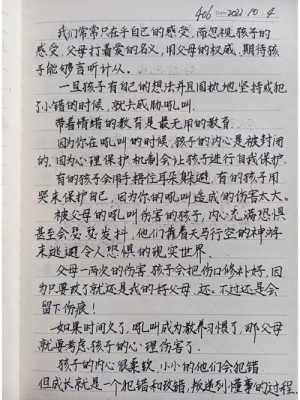 406 — 2022.10.4
我们常常只在乎自己的感受,而忽视孩子的
感受,父母打着爱的名义,用父母的权威,期待孩
子能够言听计从。
一旦孩子有自己的想法并且固执地坚持或犯
了小错的时候,就去威胁吼叫.
带着情绪的教育是最无用的教育.
因为你在吼叫的时候,孩子的内心是被封闭
的.因为心理保护机制会让孩子进行自我保护.
有的孩子会用手捂住耳朵躲避,有的孩子用
哭来保护自己,因为你的吼叫造成的伤害太大。
被父母的吼叫伤害的孩子,内心充满恐惧
甚至会瑟瑟发抖,他们靠着天马行空的神游
来逃避令人恐惧的现实世界.
父母一两次的伤害,孩子会把伤口修补好,因
为只要改了就还是我的好父母,还.不过还是会
留下伤痕!
如果时间久了,吼叫成为教养习惯了,那父母
就要考虑.孩子的心理伤害了.
孩子的内心很柔软,小小的他们会犯错
但成长就是一个犯错和改错,叛逆到懂事的过程.